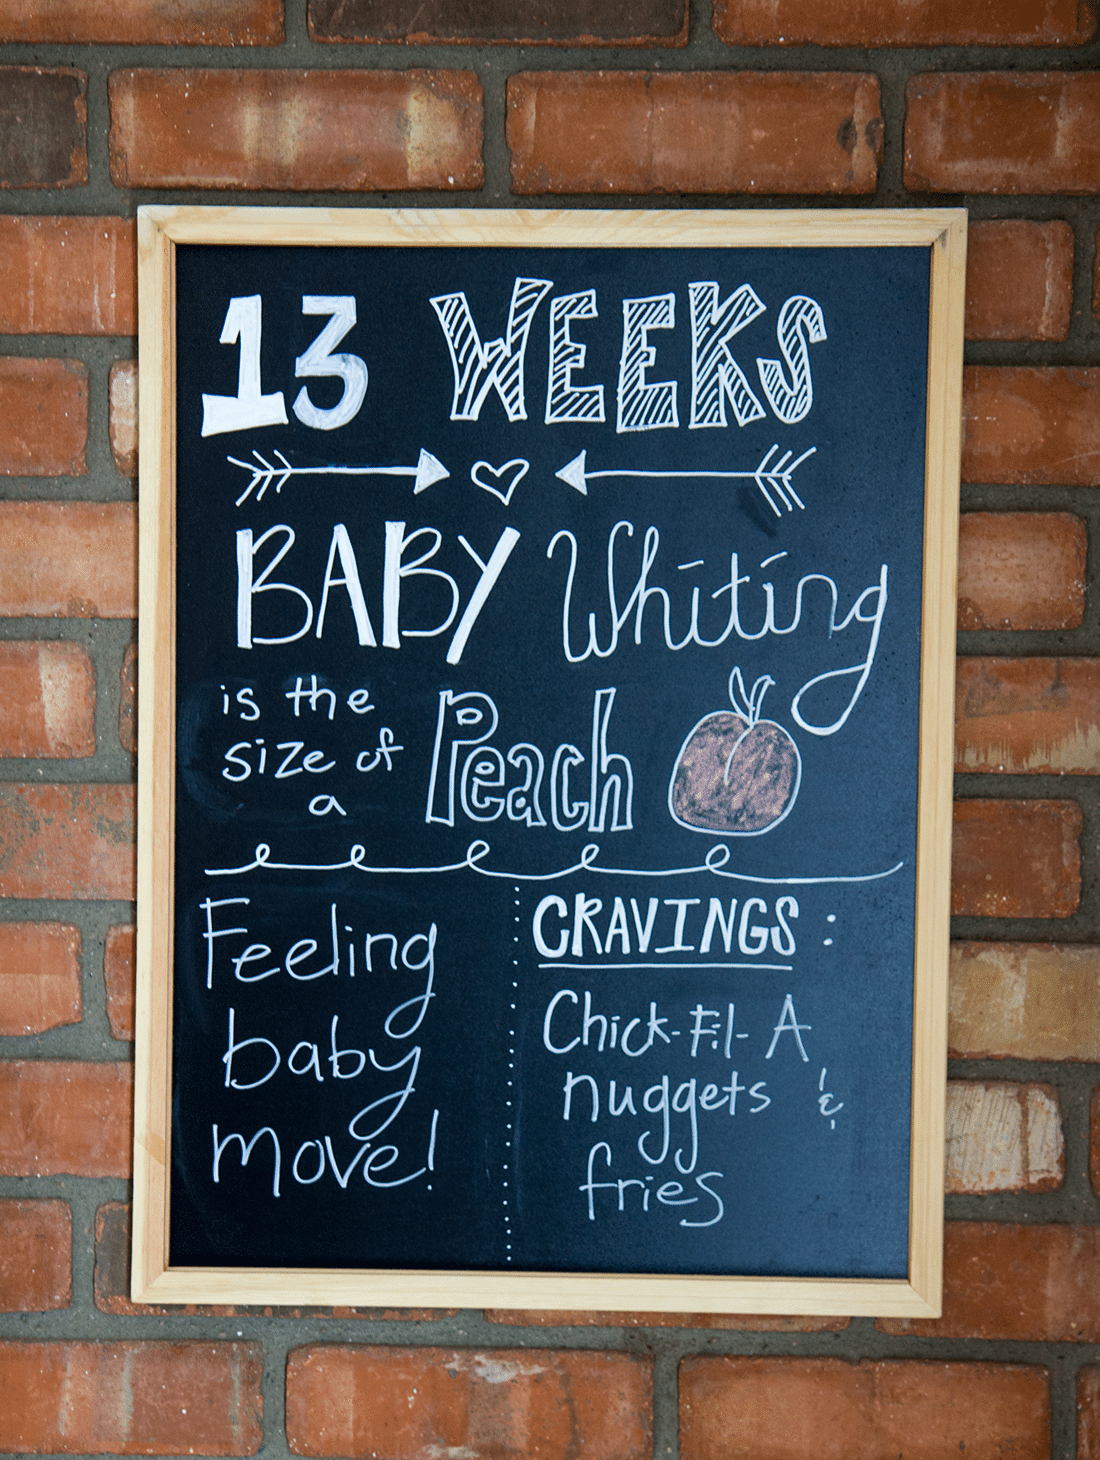 13 WEEKS
BABY Whiting
is the
size of
a
Peach
Feeling
baby
move!
CRAVINGS:
Chick-Fil-A
nuggets &
fries